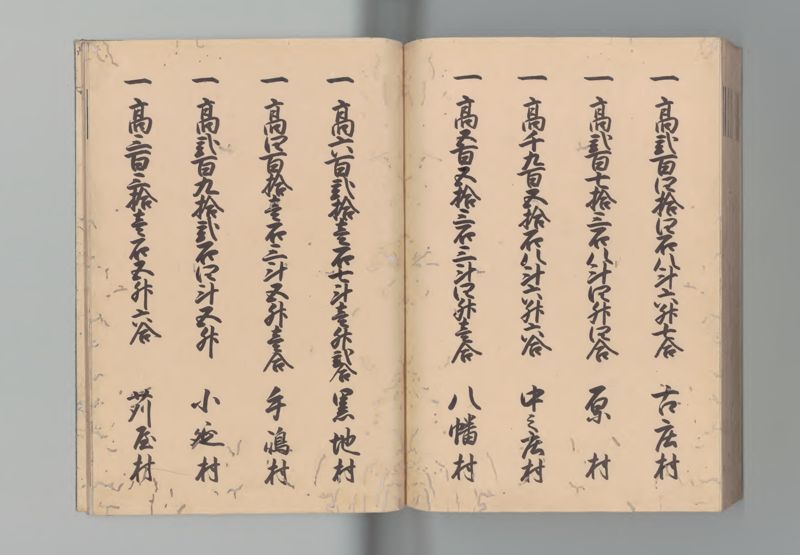 一高弐百四拾四石八斗六升七合 古庄村
一高弐百七拾三石八斗四升四合 原村
一高千九百五拾石八斗六升六合 中之庄村
一高五百五拾三石三斗四升壱合 八幡村
一高六百弐拾壱石七斗壱升弐合 黒地村
一高四百拾壱石三斗五升壱合 手嶋村
一高弐百九拾弐石四斗五升 小延村
一高三百三拾壱石五升六合 苅屋村